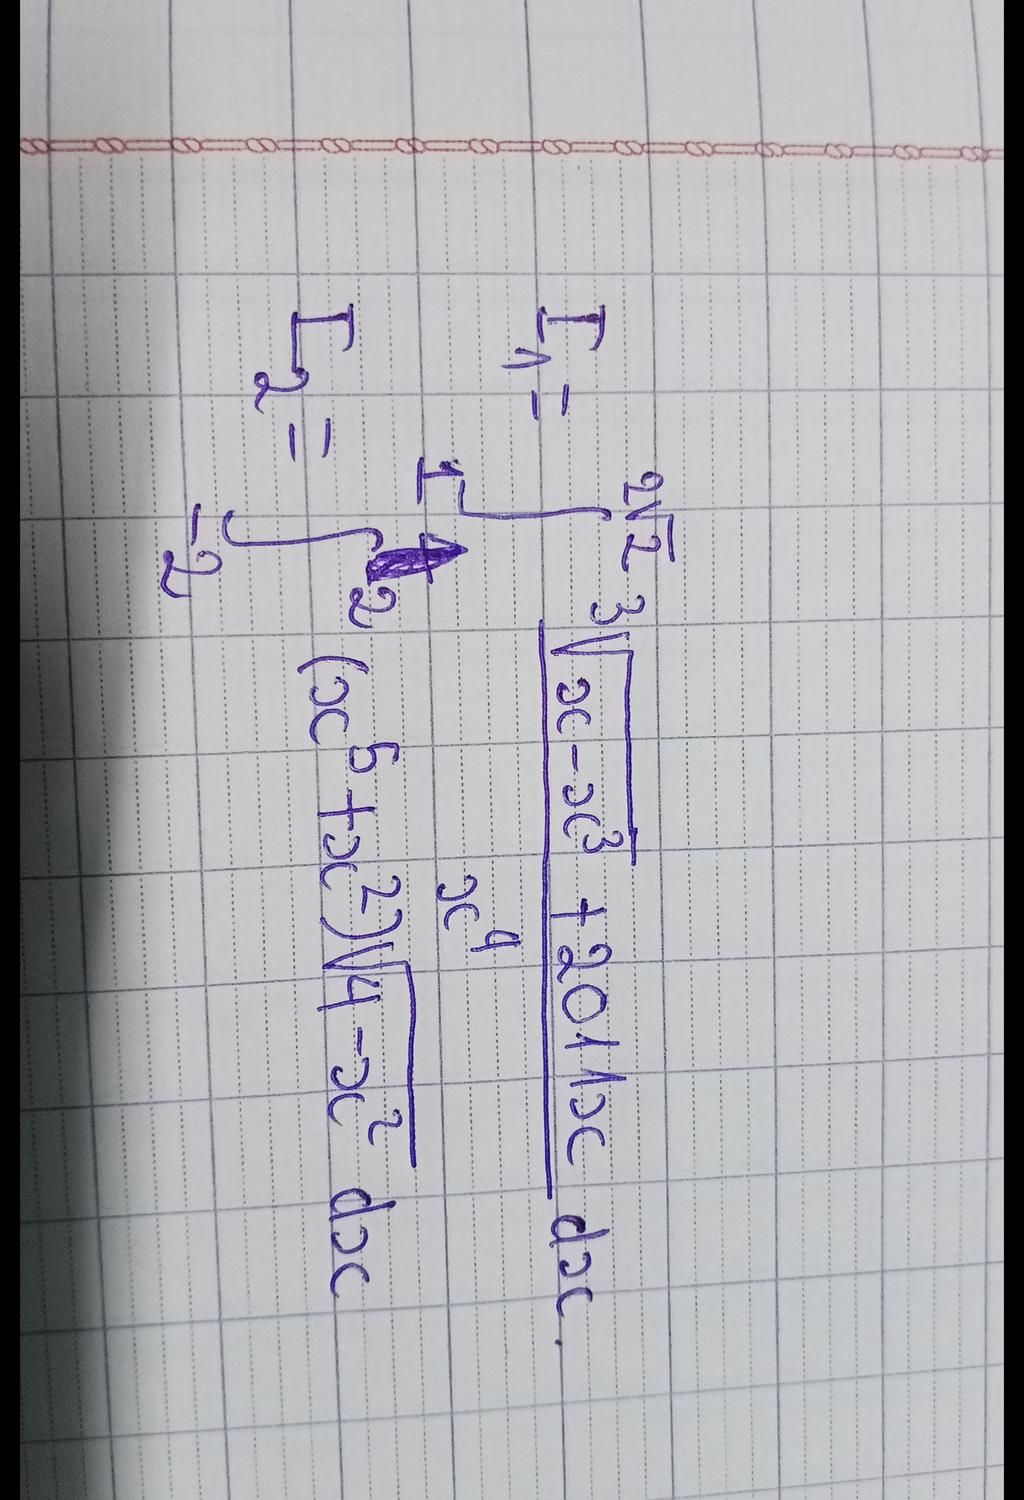 I₁ = ∫₁^{2√2} (∛(x-x³) + 2011x) / x⁴ dx.
I₂ = ∫₋₂² (x⁵+x²)√(4-x²) dx